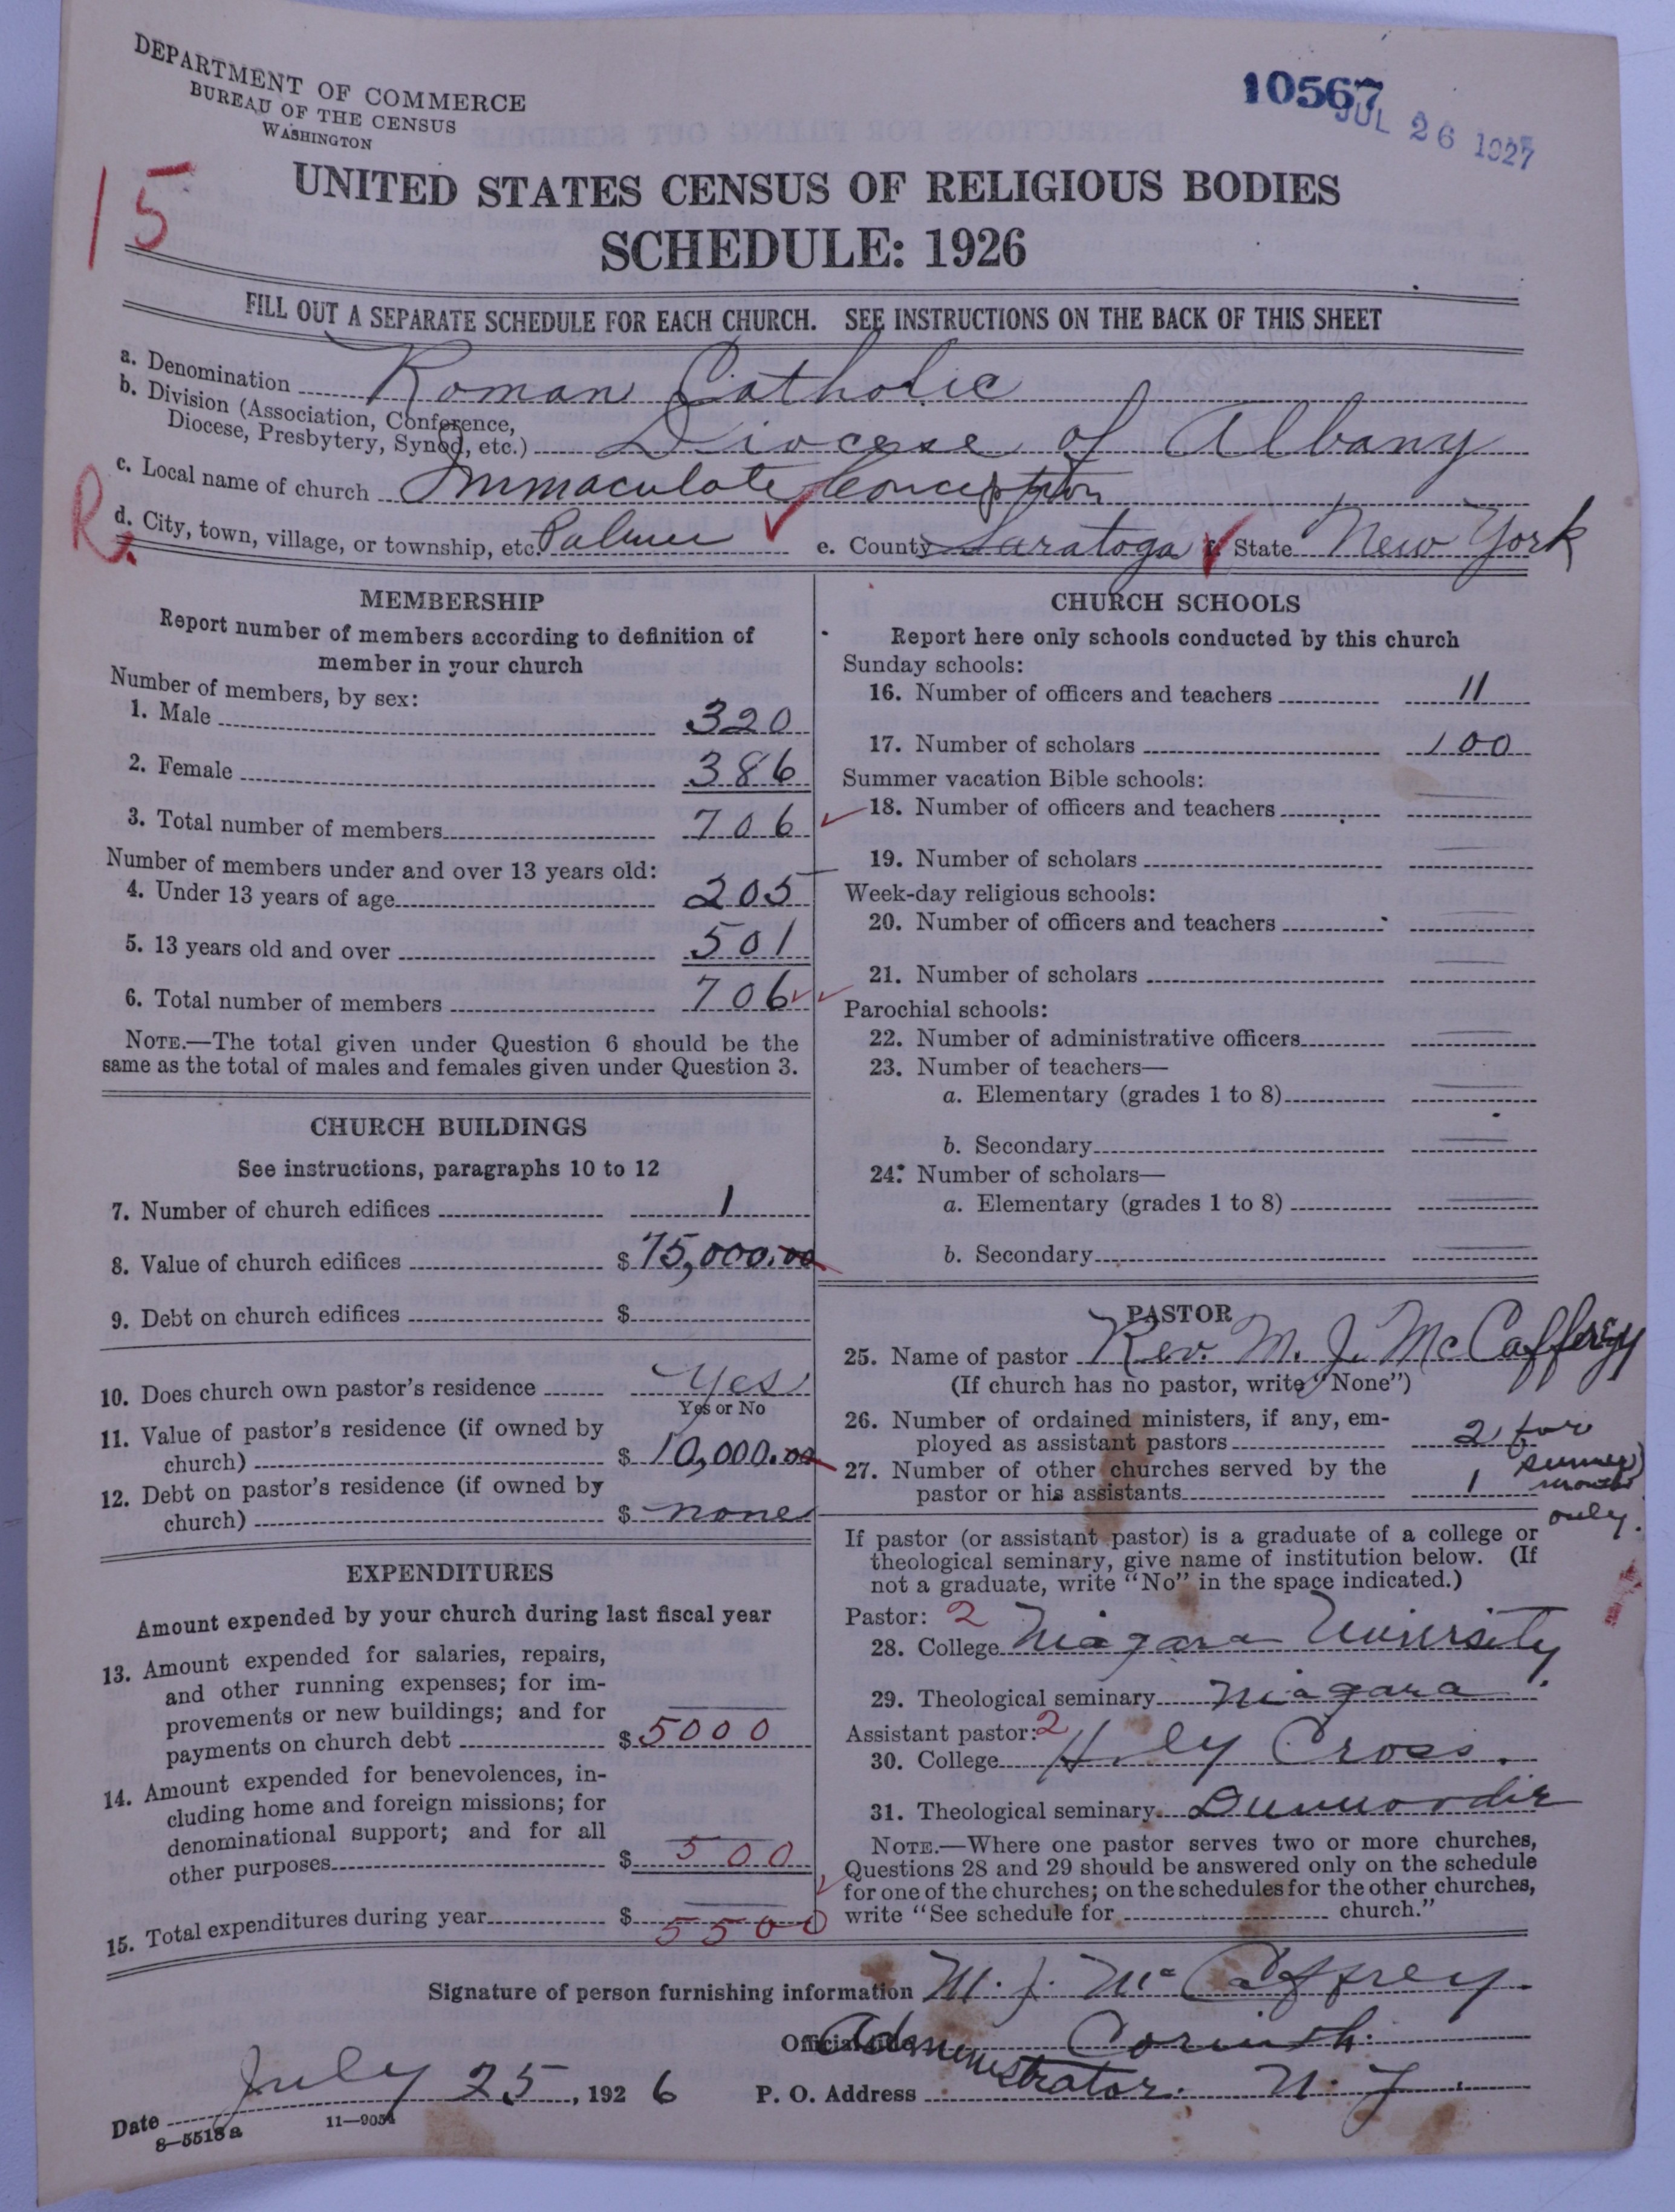 DEPARTMENT OF COMMERCE
BUREAU OF THE CENSUS
WASHINGTON
10567
JUL 26 1927
15
UNITED STATES CENSUS OF RELIGIOUS BODIES
SCHEDULE: 1926
FILL OUT A SEPARATE SCHEDULE FOR EACH CHURCH. SEE INSTRUCTIONS ON THE BACK OF THIS SHEET
a. Denomination Roman Catholic
b. Division (Association, Conference, Diocese, Presbytery, Synod, etc.) Diocese of Albany
c. Local name of church Immaculate Conception
R.
d. City, town, village, or township, etc. Palmer e. County Saratoga f. State New York
MEMBERSHIP
Report number of members according to definition of
member in your church
Number of members, by sex:
1. Male 320
2. Female 386
3. Total number of members 706
Number of members under and over 13 years old:
4. Under 13 years of age 205
5. 13 years old and over 501
6. Total number of members 706
NOTE.—The total given under Question 6 should be the
same as the total of males and females given under Question 3.
CHURCH BUILDINGS
See instructions, paragraphs 10 to 12
7. Number of church edifices 1
8. Value of church edifices $ 75,000.00
9. Debt on church edifices $
10. Does church own pastor's residence Yes
Yes or No
11. Value of pastor's residence (if owned by
church) $ 10,000.00
12. Debt on pastor's residence (if owned by
church) $ none
EXPENDITURES
Amount expended by your church during last fiscal year
13. Amount expended for salaries, repairs,
and other running expenses; for im-
provements or new buildings; and for
payments on church debt $ 5000
14. Amount expended for benevolences, in-
cluding home and foreign missions; for
denominational support; and for all
other purposes $ 500
15. Total expenditures during year $ 5500
CHURCH SCHOOLS
Report here only schools conducted by this church
Sunday schools:
16. Number of officers and teachers 11
17. Number of scholars 100
Summer vacation Bible schools:
18. Number of officers and teachers
19. Number of scholars
Week-day religious schools:
20. Number of officers and teachers
21. Number of scholars
Parochial schools:
22. Number of administrative officers
23. Number of teachers—
a. Elementary (grades 1 to 8)
b. Secondary
24. Number of scholars—
a. Elementary (grades 1 to 8)
b. Secondary
PASTOR
25. Name of pastor Rev. M. J. McCaffrey
(If church has no pastor, write "None")
26. Number of ordained ministers, if any, em-
ployed as assistant pastors 2 for
27. Number of other churches served by the summer
pastor or his assistants 1 months
only.
If pastor (or assistant pastor) is a graduate of a college or
theological seminary, give name of institution below. (If
not a graduate, write "No" in the space indicated.)
Pastor: 2
28. College Niagara University.
29. Theological seminary Niagara
Assistant pastor: 2
30. College Holy Cross.
31. Theological seminary Dunwoodie
NOTE.—Where one pastor serves two or more churches,
Questions 28 and 29 should be answered only on the schedule
for one of the churches; on the schedules for the other churches,
write "See schedule for church."
Signature of person furnishing information M. J. McCaffrey.
Official title Administrator.
Corinth.
Date July 25, 1926 P. O. Address N. Y.
8—5518a 11—9051